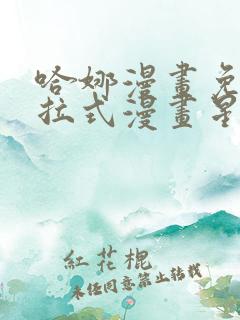 哈娜漫畫免
拉式漫畫星
紅花棍
未經同意禁止轉載